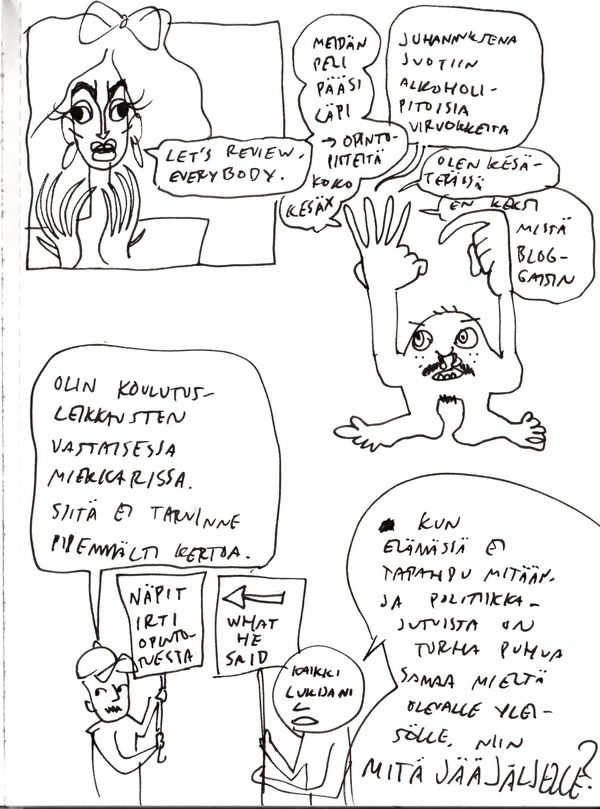 LET'S REVIEW,
EVERYBODY.
MEIDÄN
PELI
PÄÄSI
LÄPI
→ OPINTO-
PISTEITÄ
KOKO
KESÄX
JUHANNUKSENA
JUOTIIN
ALKOHOLI-
PITOISIA
VIRVOKKEITA
OLEN KESÄ-
TERÄSSÄ
EN KEKSI
MISTÄ
BLOG-
GAISIN
OLIN KOULUTUS-
LEIKKAUSTEN
VASTAISESSA
MIEKKARISSA.
SIITÄ EI TARVINNE
PIDEMMÄLTI KERTOA.
NÄPIT
IRTI
OPINTO-
TUESTA
WHAT
HE
SAID
KAIKKI
LUKIJANI
KUN
ELÄMÄSSÄ EI
TAPAHDU MITÄÄN
JA POLITIIKKA-
JUTUISTA ON
TURHA PUHUA
SAMAA MIELTÄ
OLEVALLE YLEI-
SÖLLE, NIIN
MITÄ JÄÄ JÄLJELLE?